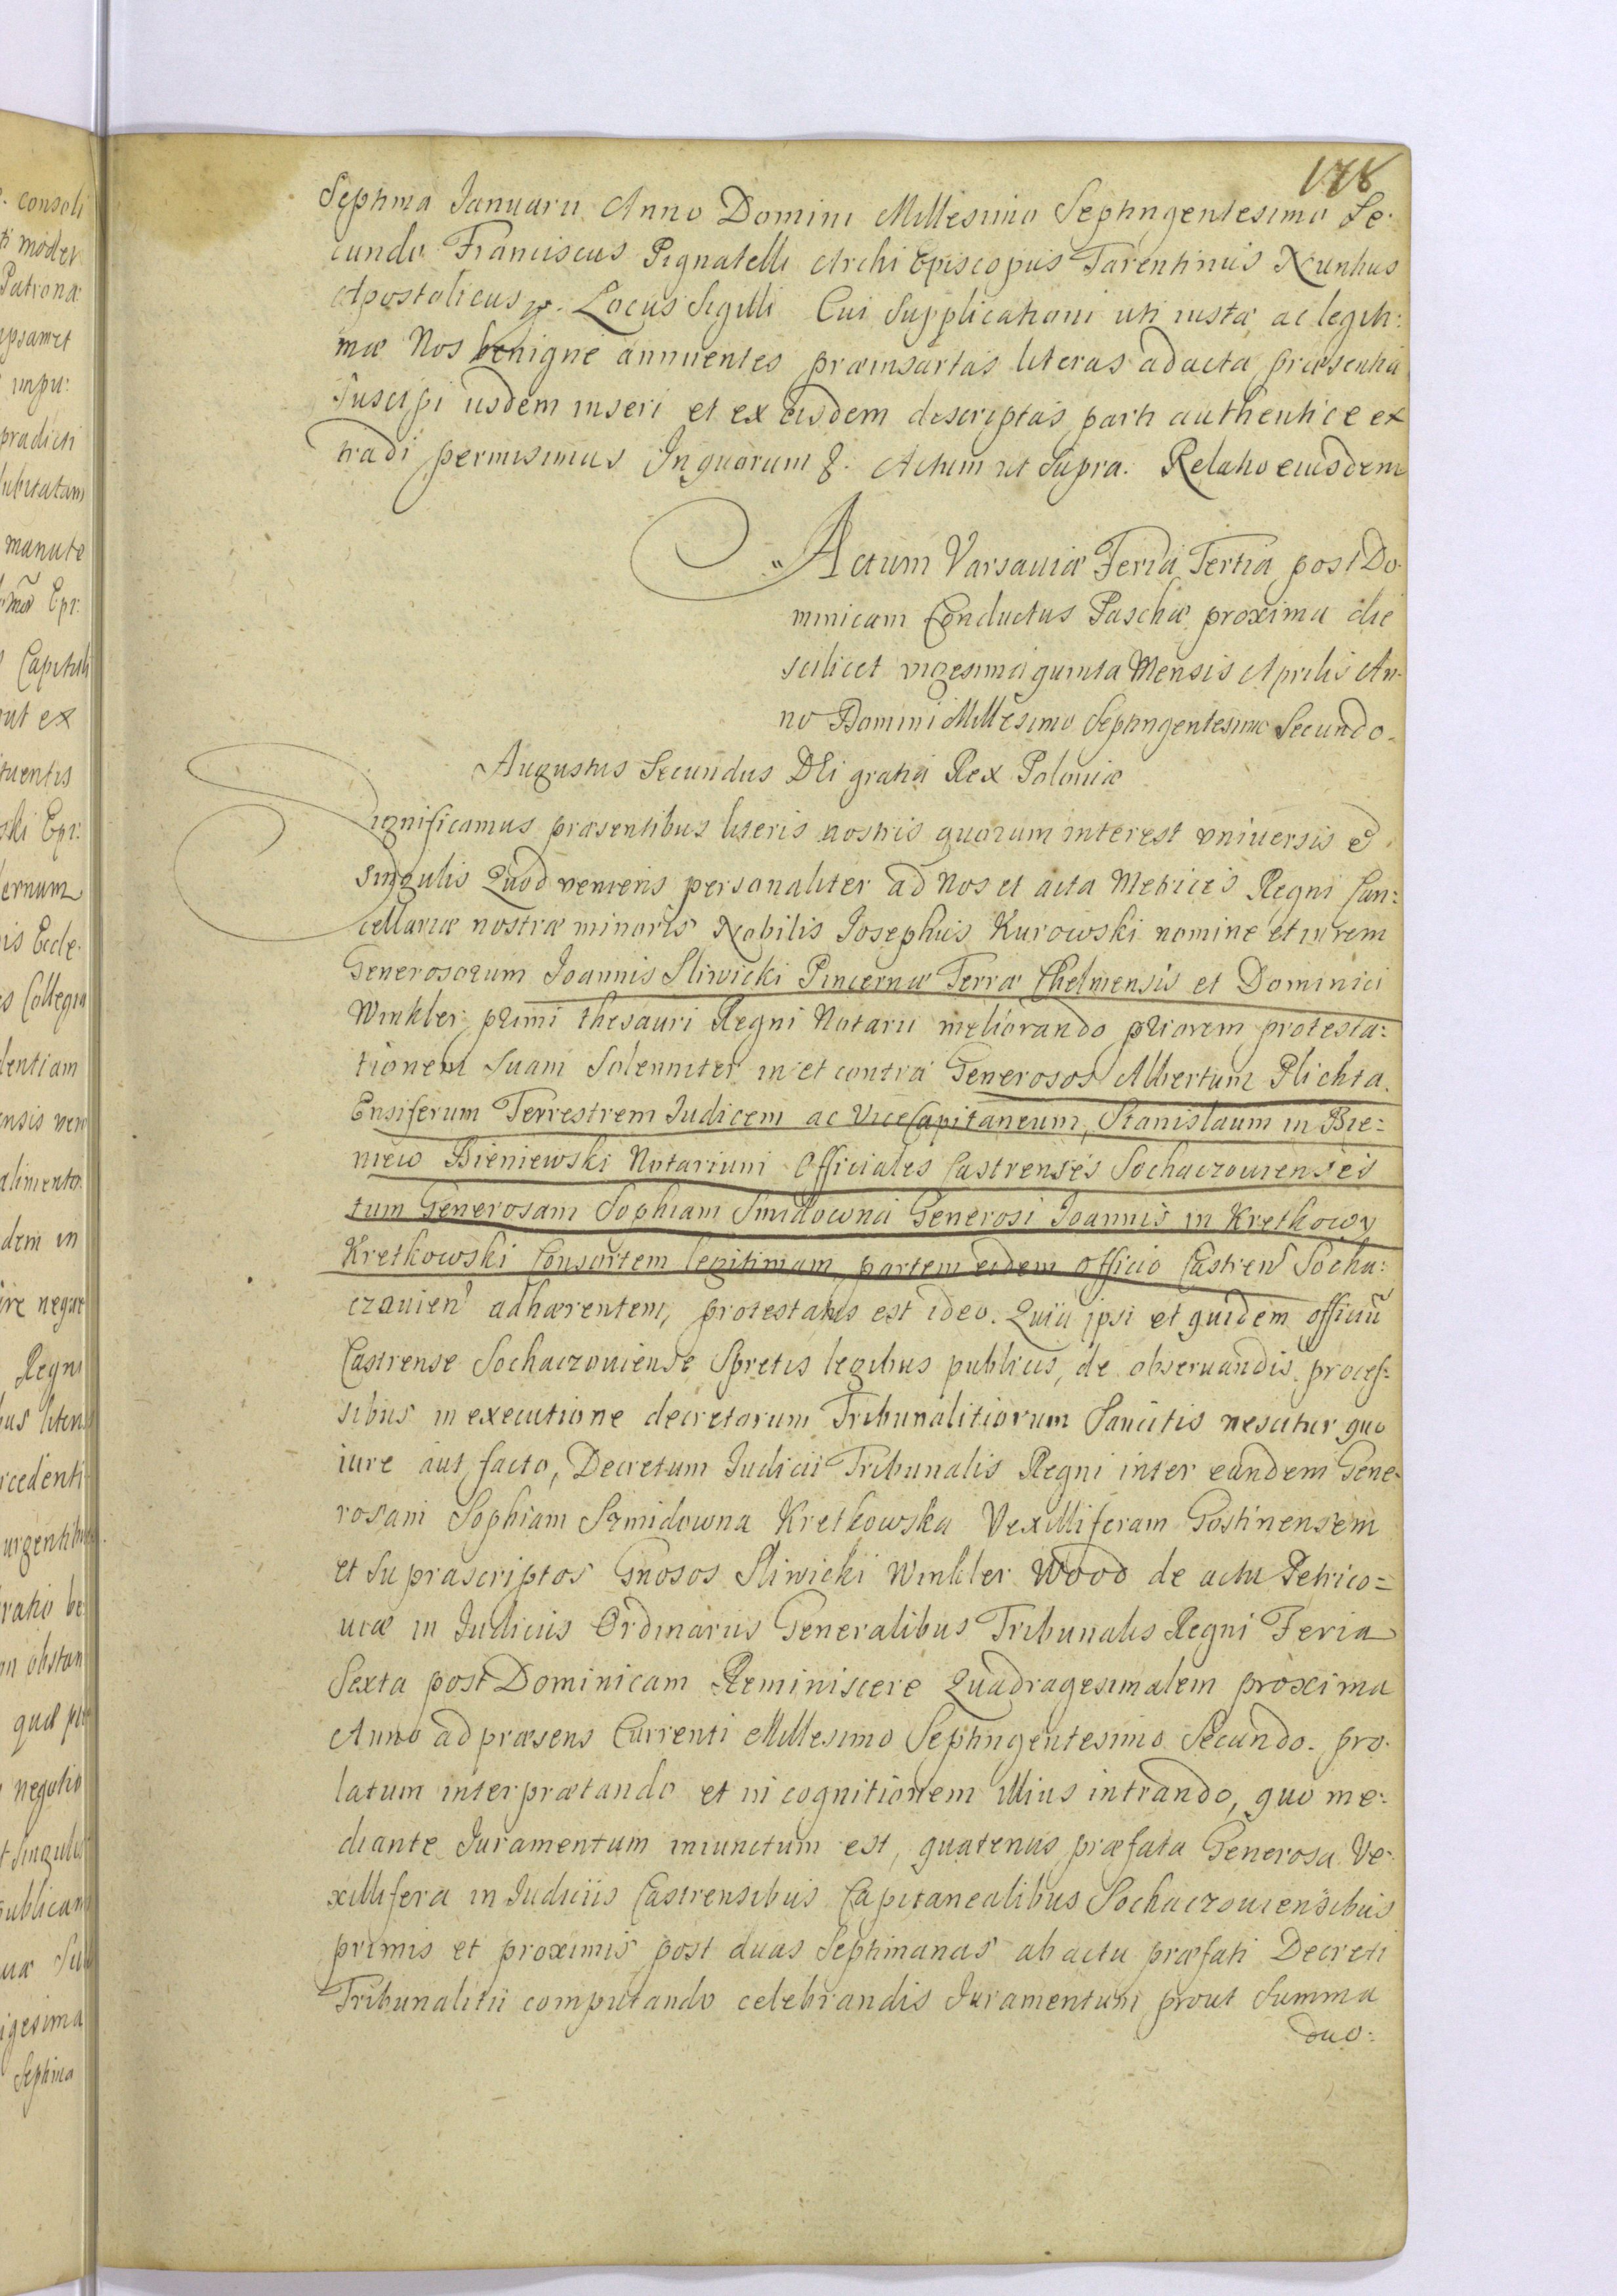 178
Septima Januarii Anno Domini Millesimo Septingentesimo Se-
cundo Franciscus Pignatelli Archi Episcopus Tarentinus Nuntius
Apostolicus Locus Sigilli Cui Supplicationi uti iustæ ac legiti:
mæ Nos benigne annuentes præinsertas literas ad acta præsentia
suscipi iisdem inseri et ex eisdem descriptas parti authentice ex
tradi permisimus In quorum &. Actum ut Supra. Relatio eiusdem
Actum Varsaviæ Feria Tertia post Do-
minicam Conductus Paschæ proxima die
scilicet vigesima quinta Mensis Aprilis An-
no Domini Millesimo Septingentesimo Secundo.
Augustus Secundus DEi gratia Rex Poloniæ
Significamus præsentibus literis nostris quorum interest universis et
singulis Quod veniens personaliter ad Nos et acta Metrices Regni Can:
cellariæ nostræ minoris Nobilis Josephus Kurowski nomine et in rem
Generosorum Joannis Sliwicki Pincernæ Terræ Chelmensis et Dominici
Winkler primi thesauri Regni Notarii meliorando priorem protesta:
tionem suam Solenniter in et contra Generosos Albertum Plichta
Ensiferum Terrestrem Judicem ac ViceCapitaneum, Stanislaum in Bie:
niew Bieniewski Notarium Officiales Castrenses Sochaczovienses
tum Generosam Sophiam Smidowna Generosi Joannis in Kretkowy
Kretkowski Consortem legitimam, partem eidem officio Castren Socha:
czovien adhærentem, protestatus est ideo. Quia ipsi et quidem officiũ
Castrense Sochaczoviense Spretis legibus publicis, de observandis proces-
sibus in executione decretorum Tribunalitiorum Sancitis nescitur quo
iure aut facto, Decretum Judicii Tribunalis Regni inter eandem Gene-
rosam Sophiam Szmidowna Kretkowska Vexilliferam Gostinensem
et Supräscriptos Gnosos Sliwicki Winkler Wood de actu Petrico=
viæ in Judiciis Ordinariis Generalibus Tribunalis Regni Feria
Sexta post Dominicam Reminiscere Quadragesimalem proxima
Anno ad præsens Currenti Millesimo Septingentesimo Secundo. pro-
latum interprætando et in cognitionem illius intrando, quo me-
diante Juramentum iniunctum est, quatenus præfata Generosa Ve-
xillifera in Judiciis Castrensibus Capitanealibus Sochaczoviensibus
primis et proximis post duas Septimanas ab actu præfati Decreti
Tribunalitii computando celebrandis Juramentum prout Summa
duo: